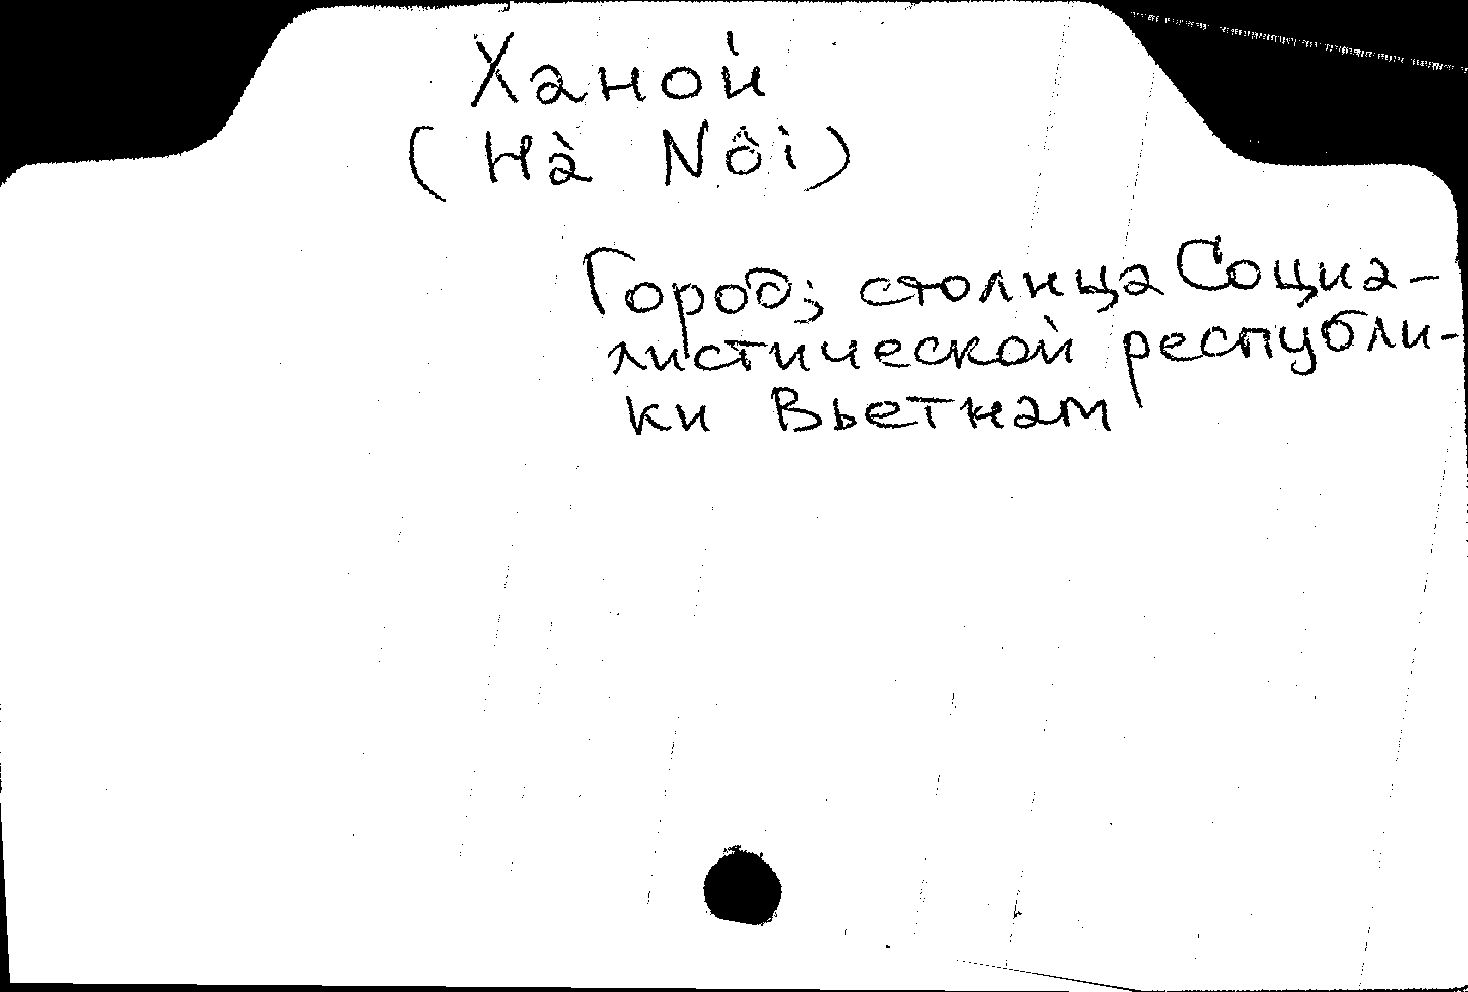 Ханой
(Hà Nôi)
Город; столица Социа-
листической республи-
ки Вьетнам